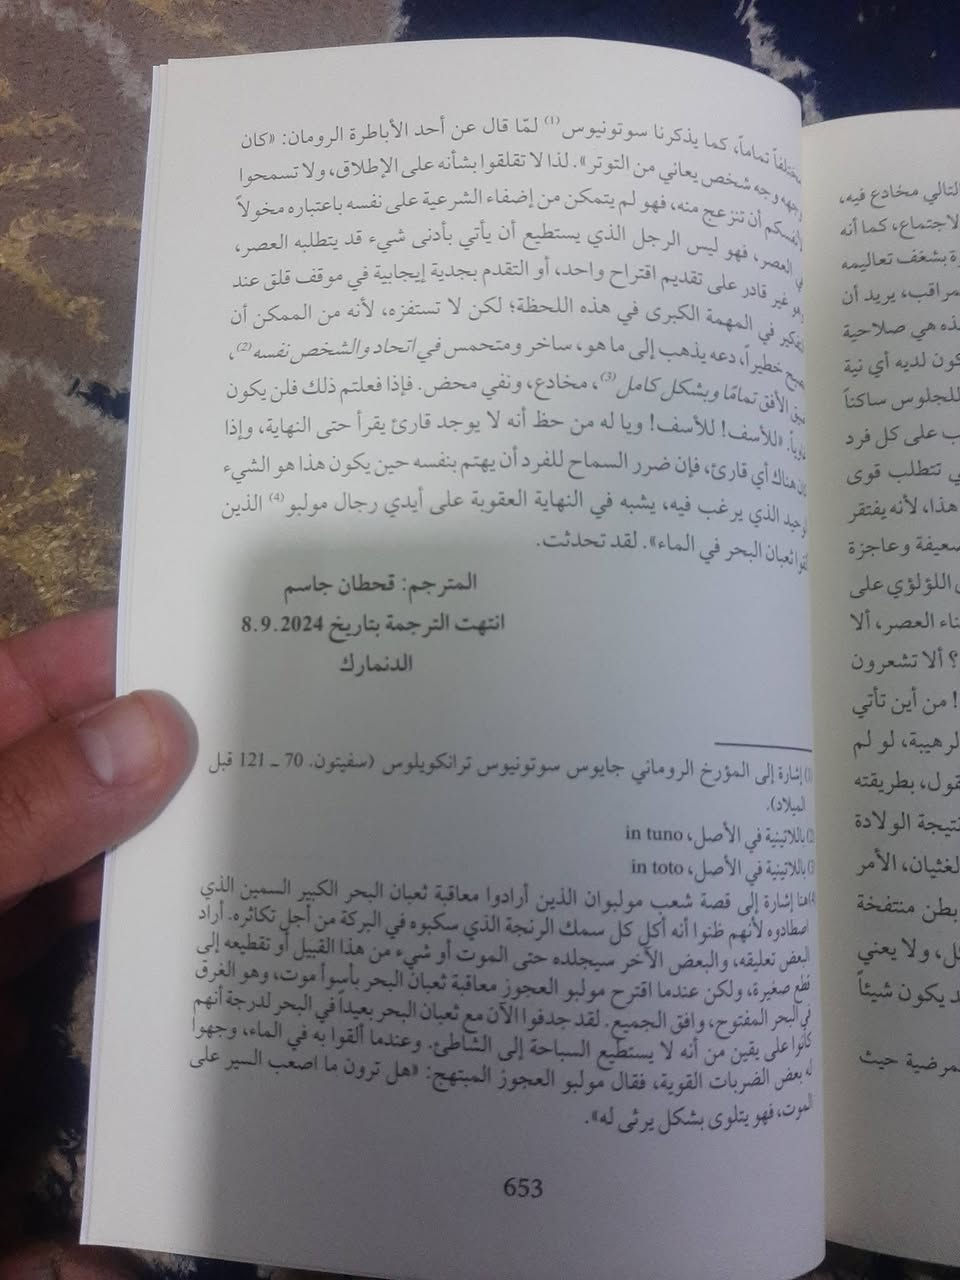 مختلفاً تماماً، كما يذكرنا سوتونيوس(1) لمّا قال عن أحد الأباطرة الرومان: «كان
وجهه وجه شخص يعاني من التوتر». لذا لا تقلقوا بشأنه على الإطلاق، ولا تسمحوا
لأنفسكم أن تنزعج منه، فهو لم يتمكن من إضفاء الشرعية على نفسه باعتباره مخولاً
في العصر، فهو ليس الرجل الذي يستطيع أن يأتي بأدنى شيء قد يتطلبه العصر،
وهو غير قادر على تقديم اقتراح واحد، أو التقدم بجدية إيجابية في موقف قلق عند
التفكير في المهمة الكبرى في هذه اللحظة؛ لكن لا تستفزه، لأنه من الممكن أن
يصبح خطيراً، دعه يذهب إلى ما هو، ساخر ومتحمس في اتحاد والشخص نفسه(2)،
ضيق الأفق تمامًا وبشكل كامل(3)، مخادع، ونفي محض. فإذا فعلتم ذلك فلن يكون
«للأسف! للأسف! ويا له من حظ أنه لا يوجد قارئ يقرأ حتى النهاية، وإذا
كان هناك أي قارئ، فإن ضرر السماح للفرد أن يهتم بنفسه حين يكون هذا هو الشيء
الوحيد الذي يرغب فيه، يشبه في النهاية العقوبة على أيدي رجال مولبو(4) الذين
ألقوا ثعبان البحر في الماء». لقد تحدثت.
المترجم: قحطان جاسم
انتهت الترجمة بتاريخ 8.9.2024
الدنمارك
(1) إشارة إلى المؤرخ الروماني جايوس سوتونيوس ترانكويلوس (سفيتون. 70 ـ 121 قبل
الميلاد).
(2) باللاتينية في الأصل، in tuno
(3) باللاتينية في الأصل، in toto
(4) هنا إشارة إلى قصة شعب مولبوان الذين أرادوا معاقبة ثعبان البحر الكبير السمين الذي
اصطادوه لأنهم ظنوا أنه أكل كل سمك الرنجة الذي سكبوه في البركة من أجل تكاثره. أراد
البعض تعليقه، والبعض الآخر سيجلده حتى الموت أو شيء من هذا القبيل أو تقطيعه إلى
قطع صغيرة، ولكن عندما اقترح مولبو العجوز معاقبة ثعبان البحر بأسوأ موت، وهو الغرق
في البحر المفتوح، وافق الجميع. لقد جدفوا الآن مع ثعبان البحر بعيداً في البحر لدرجة أنهم
كانوا على يقين من أنه لا يستطيع السباحة إلى الشاطئ. وعندما ألقوا به في الماء، وجهوا
له بعض الضربات القوية، فقال مولبو العجوز المبتهج: «هل ترون ما اصعب السير على
الموت، فهو يتلوى بشكل يرثى له».
653
التالي مخادع فيه،
الاجتماع، كما أنه
بشغف تعاليمه
يريد أن
هي صلاحية
كون لديه أي نية
للجلوس ساكناً
على كل فرد
تتطلب قوى
هذا، لأنه يفتقر
ضعيفة وعاجزة
اللؤلؤي على
العصر، ألا
؟ ألا تشعرون
! من أين تأتي
الرهيبة، لو لم
بطريقته
نتيجة الولادة
الغثيان، الأمر
بطن منتفخة
ولا يعني
يكون شيئاً
حيث